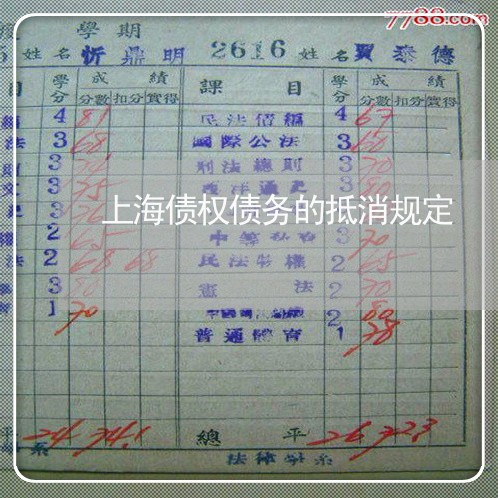 7788.com
學期
姓名 忻鼎明 2616 姓名 賈泰德
目 學分 成績 課目 學分 成績
分數 扣分 實得 分數 扣分 實得
4 81 民法債編 4 67
法 3 68 國際公法 3 60
3 刑法總則 3 70
文 3 75 西洋通史 3 80
3 76
上海债权债务的抵消规定
權 2 65 中等私有 3 70
法 2 68 68 民法物權 2 65
3 80 憲法 2 70
1 70 2 80
普通體育 1 78
平 24 74.1 總平 26 72.3
系 法律學系